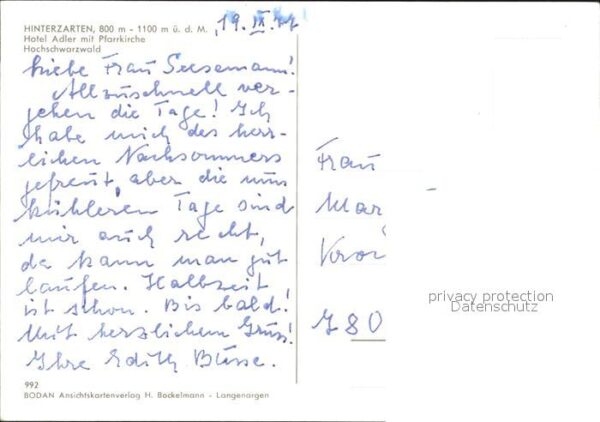 HINTERZARTEN, 800 m - 1100 m ü. d. M.
Hotel Adler mit Pfarrkirche
Hochschwarzwald
19. IX. 77
Liebe Frau Seesemann!
Allzuschnell ver-
gehen die Tage! Ich
habe mich des herr-
lichen Nachsommers
gefreut, aber die nun
kühleren Tage sind
mir auch recht,
da kann man gut
laufen. Halbzeit
ist schon. Bis bald!
Mit herzlichem Gruss!
Ihre Edith Büsse.
Frau
Mar
80
privacy protection
Datenschutz
992
BODAN Ansichtskartenverlag H. Bockelmann - Langenargen